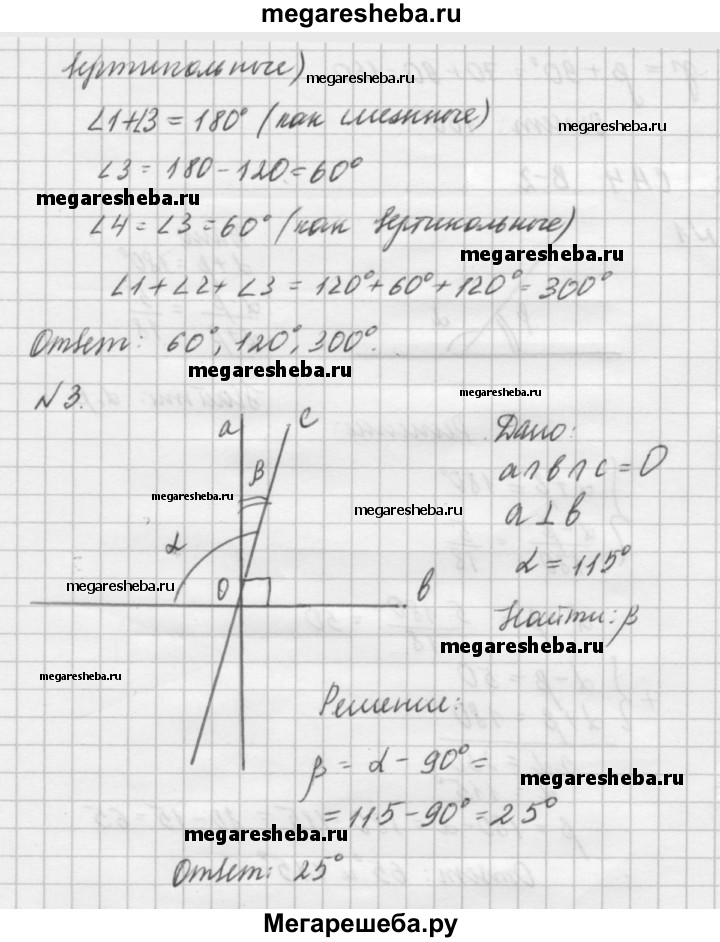 megaresheba.ru
вертикальные)
megaresheba.ru
∠1+∠3 = 180° (как смежные)
megaresheba.ru
∠3 = 180 - 120 = 60°
megaresheba.ru
∠4 = ∠3 = 60° (как вертикальные)
megaresheba.ru
∠1 + ∠2 + ∠3 = 120° + 60° + 120° = 300°
Ответ: 60°, 120°, 300°.
megaresheba.ru
№3.
megaresheba.ru
a c Дано:
β a∩b∩c = O
megaresheba.ru megaresheba.ru
a ⊥ b
α α = 115°
megaresheba.ru
O b
Найти: β
megaresheba.ru
megaresheba.ru
Решение:
β = α - 90° =
megaresheba.ru
= 115 - 90° = 25°
megaresheba.ru
Ответ: 25°
megaresheba.ru
Мегарешеба.ру